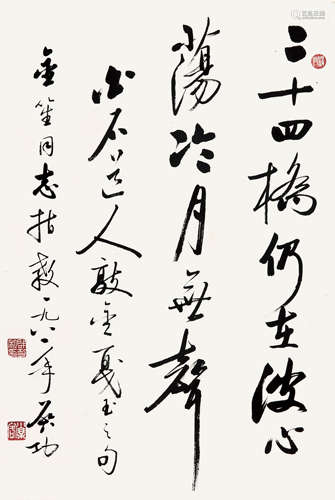 二十四橋仍在波心
蕩冷月無聲
白石道人敲金戛玉之句
金笙同志指教 一九八一年 啓功